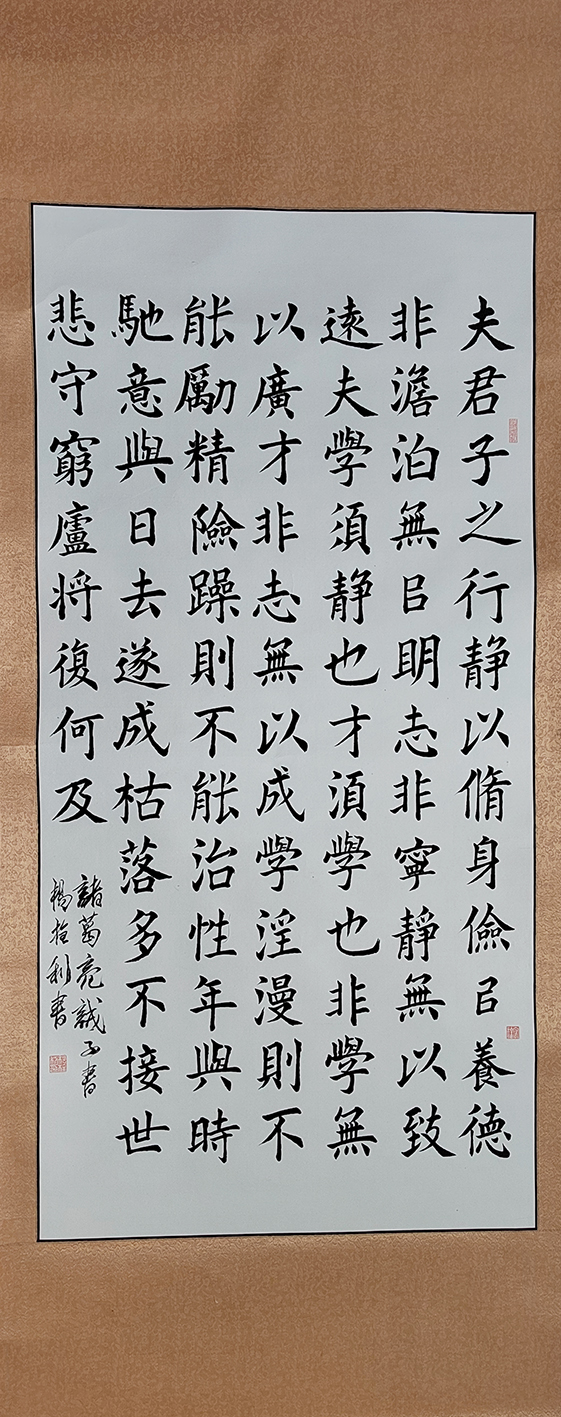 夫君子之行静以脩身儉㠯養德
非澹泊無㠯明志非寧靜無以致
遠夫學須静也才須學也非學無
以廣才非志無以成學淫漫則不
能勵精險躁則不能治性年與時
馳意與日去遂成枯落多不接世
悲守窮廬将復何及
諸葛亮誡子書
利書